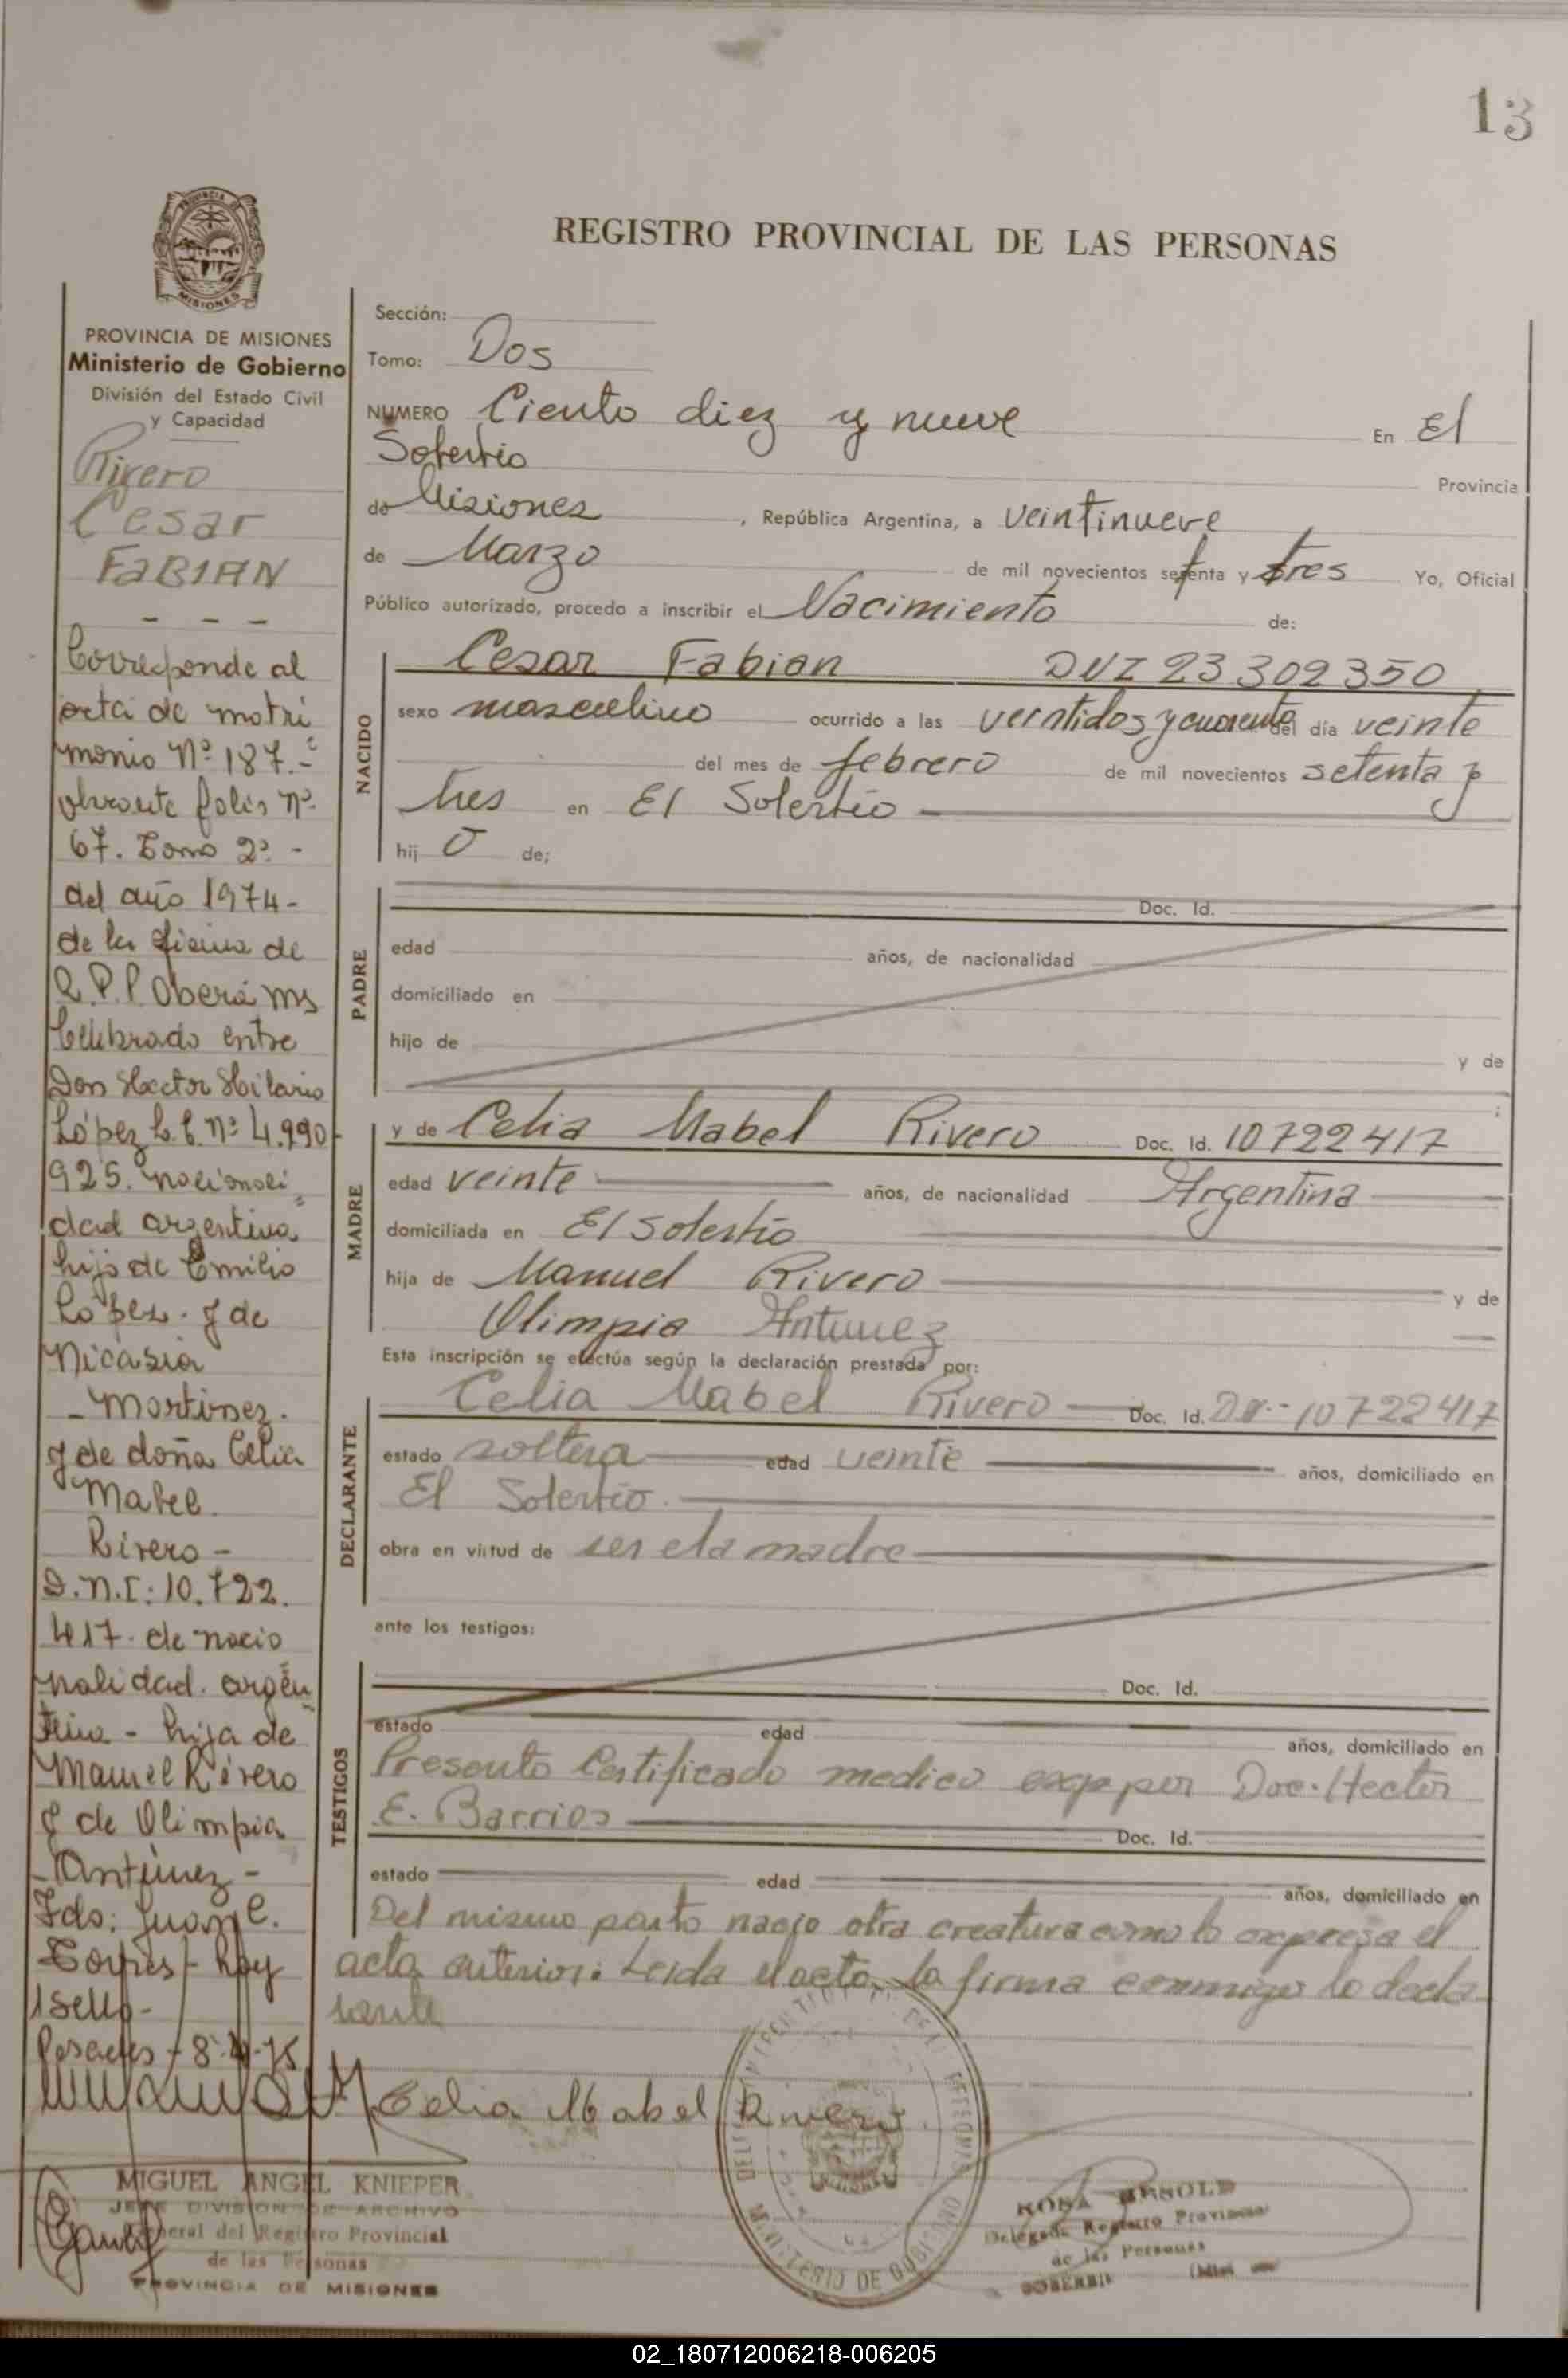 13
REGISTRO PROVINCIAL DE LAS PERSONAS
PROVINCIA DE MISIONES
Ministerio de Gobierno
División del Estado Civil
y Capacidad
Rivero
Cesar
FABIAN
- - -
Corresponde al
acta de matri
monio Nº 187.-
obrante folio nº
67. Tomo 2º -
del año 1974-
de la oficina de
R.P.P. Oberá Ms
Celebrado entre
Don Hector Hilario
López L.E. nº 4.990
925. nacionali
dad argentina
hijo de Emilio
López. y de
Nicasia
- Martinez.
y de doña Celia
Mabel
Rivero -
D.N.I: 10.722.
417. de nacio
nalidad. argen
tina - hija de
Manuel Rivero
y de Olimpia
- Antunez -
Fdo: Juan C.
Torres - hay
1 sello -
Posadas - 8-4-75
MIGUEL ANGEL KNIEPER
JEFE DIVISION DE ARCHIVO
General del Registro Provincial
de las Personas
PROVINCIA DE MISIONES
Sección:
Tomo: Dos
NUMERO Ciento diez y nueve En El
Soberbio Provincia
de Misiones, República Argentina, a veintinueve
de Marzo de mil novecientos setenta y tres Yo, Oficial
Público autorizado, procedo a inscribir el Nacimiento de:
NACIDO
Cesar Fabian DNI 23302350
sexo masculino ocurrido a las veintidos y cuarenta del día veinte
del mes de febrero de mil novecientos setenta y
tres en El Soberbio
hij o de;
PADRE
Doc. Id.
edad años, de nacionalidad
domiciliado en
hijo de y de
MADRE
y de Celia Mabel Rivero Doc. Id. 10722417
edad veinte años, de nacionalidad Argentina
domiciliada en El Soberbio
hija de Manuel Rivero y de
Olimpia Antunez
Esta inscripción se efectúa según la declaración prestada por:
DECLARANTE
Celia Mabel Rivero Doc. Id. 10722417
estado soltera edad veinte años, domiciliado en
El Soberbio
obra en virtud de ser ela madre
ante los testigos:
TESTIGOS
Doc. Id.
estado edad años, domiciliado en
Presento Certificado medico por Doc. Hector
E. Barrios Doc. Id.
estado edad años, domiciliado en
Del mismo parto nacio otra creatura como lo expresa el
acta anterior. Leida el acta, la firma conmigo la decla
rante
Celia Mabel Rivero
ROSA
Delegada Registro Provincial
de las Personas
SOBERBIO
MINISTERIO DE GOBIERNO
02_180712006218-006205